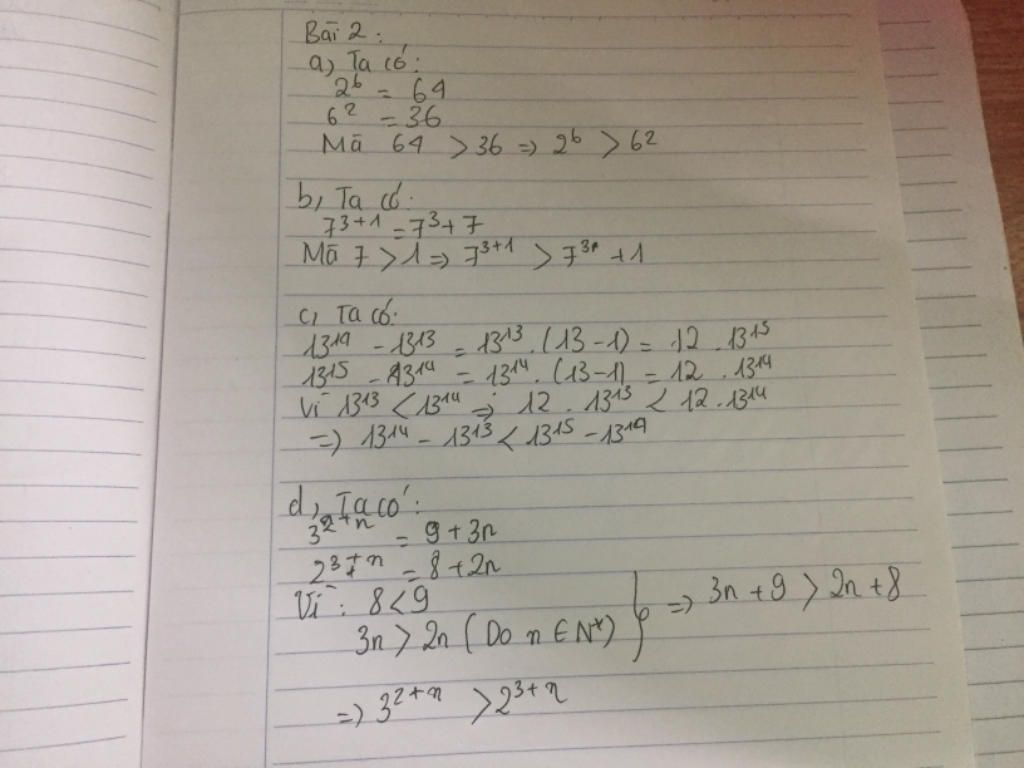 Bài 2:
a, Ta có:
2^6 = 64
6^2 = 36
Mà 64 > 36 => 2^6 > 6^2
b, Ta có:
7^{3+1} = 7^3 + 7
Mà 7 > 1 => 7^{3+1} > 7^3 + 1
c, Ta có:
13^{14} - 13^{13} = 13^{13} . (13 - 1) = 12 . 13^{13}
13^{15} - 13^{14} = 13^{14} . (13 - 1) = 12 . 13^{14}
Vì 13^{13} < 13^{14} => 12 . 13^{13} < 12 . 13^{14}
=> 13^{14} - 13^{13} < 13^{15} - 13^{14}
d, Ta có:
3^{2+n} = 9 + 3n
2^{3+n} = 8 + 2n
Vì: 8 < 9
3n > 2n (Do n ∈ N*) } => 3n + 9 > 2n + 8
=> 3^{2+n} > 2^{3+n}